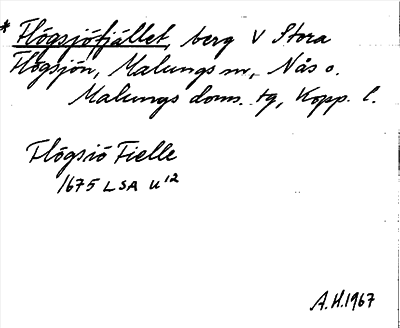 * Flögsjöfjället, berg V Stora
Flögsjön, Malungs sn, Nås o.
Malungs doms. tg, Kopp. l.
Flögsiö Fielle
1675 LSA U¹²
A.H. 1967